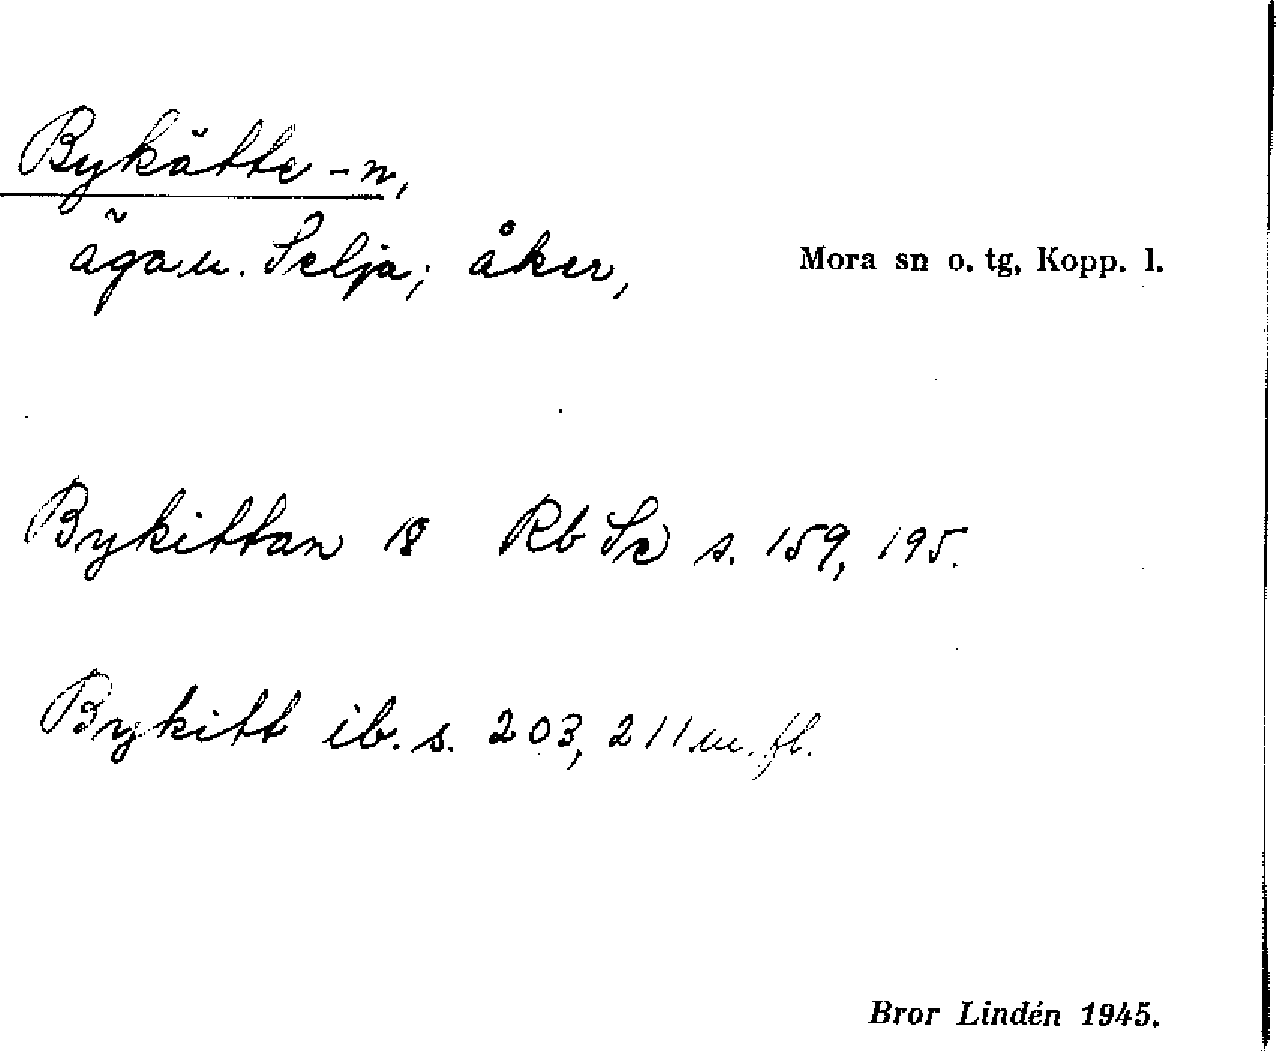 Bykätte -n,
ägam. Selja; åker, Mora sn o. tg, Kopp. l.
Bykittan 18 Rb Se s. 159, 195.
Bykitt ib. s. 203, 211 m. fl.
Bror Lindén 1945.